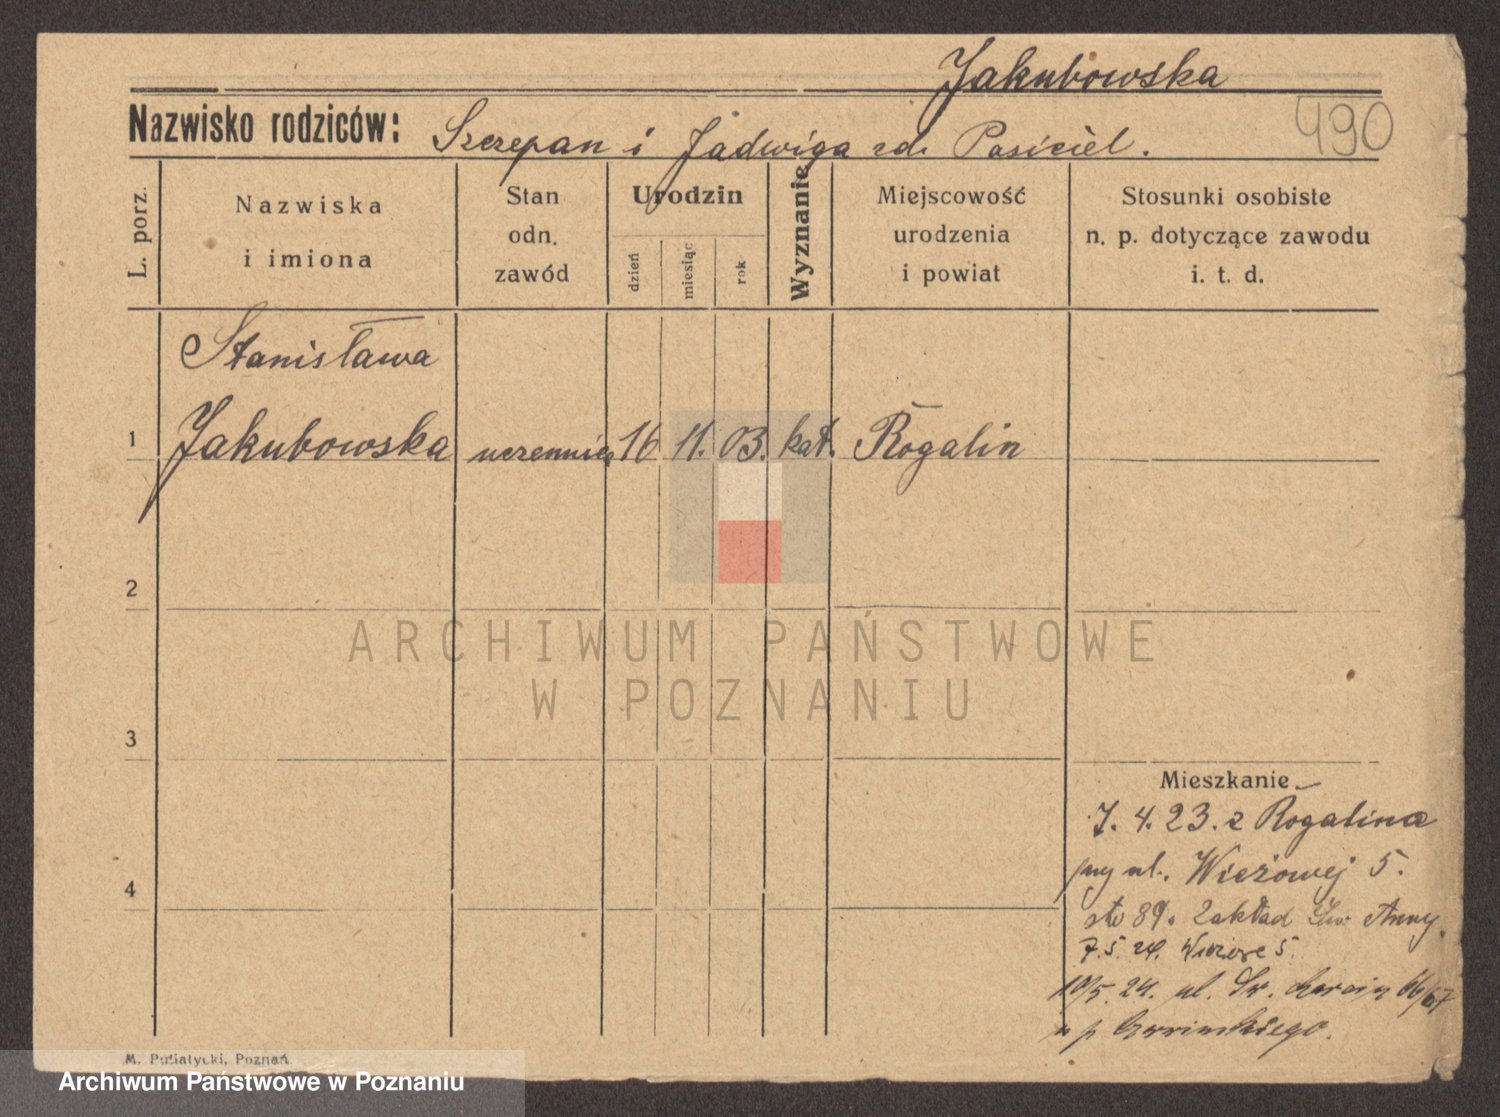 Jakubowska
490
Nazwisko rodziców: Szczepan i Jadwiga zd. Posiciel.
L. porz.
Nazwiska i imiona
Stan odn. zawód
Urodzin
dzień miesiąc rok
Wyznanie
Miejscowość urodzenia i powiat
Stosunki osobiste n. p. dotyczące zawodu i. t. d.
Stanisława
1 Jakubowska uczennica 16 11. 03. kat. Rogalin
2
ARCHIWUM PAŃSTWOWE
W POZNANIU
3
Mieszkanie
7. 4. 23. z Rogalina
przy ul. Wieżowej 5.
4
89. Zakład Św. Anny.
7. 5. 24. Wieżowe 5.
10/5. 24. ul. Św. Marcin 66/67
u p.
M. Putiatycki, Poznań
Archiwum Państwowe w Poznaniu